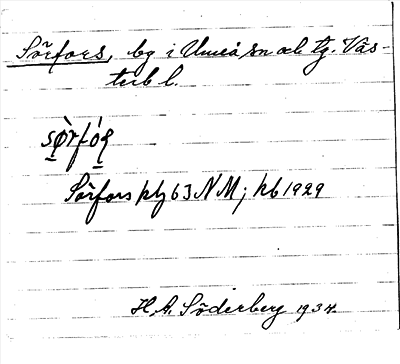 Sörfors, by i Umeå sn och tg. Väs-
terb l.
sø̀rfós̱
Sörfors ktg 63 NM; kb 1929
H. A. Söderberg 1934.